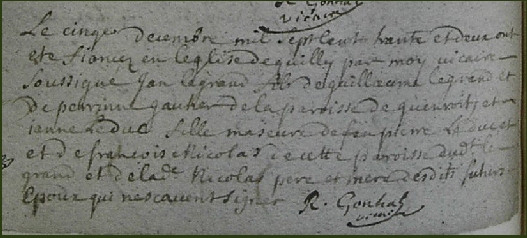 R. Gonhal
vicaire
Le cinqe decembre mil sept cent trante et deux ont
ete fiancez en leglise de quilly par moy vicaire
soussigné Jan legrand fils de guillaume legrand et
de perrinne gautier de la paroisse de guenroit et
ianne Leduc fille majeure de feu pierre Leduc et
et de francois Nicolas de cette paroisse le
grand et de lade Nicolas pere et mere desdits futurs
Epoux qui ne scavent signer R. Gonhal
vicaire